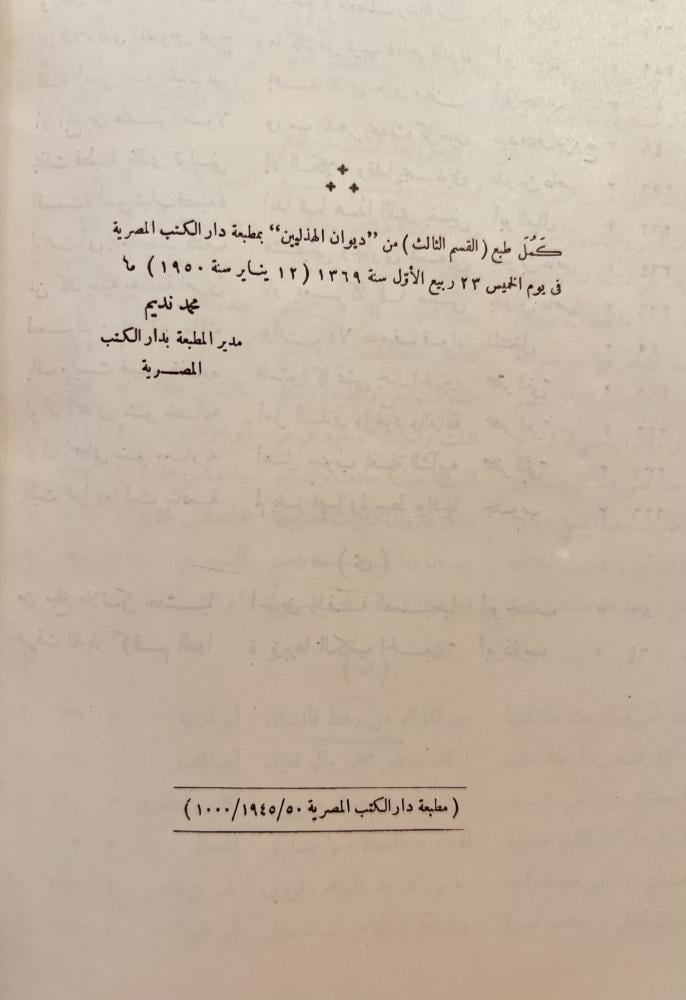 كَمُلَ طبع (القسم الثالث) من "ديوان الهذليين" بمطبعة دار الكتب المصرية
فى يوم الخميس ٢٣ ربيع الأوّل سنة ١٣٦٩ (١٢ يناير سنة ١٩٥٠) م
محمد نديم
مدير المطبعة بدار الكتب
المصـــرية
(مطبعة دار الكتب المصرية ١٠٠٠/١٩٤٥/٥٠)